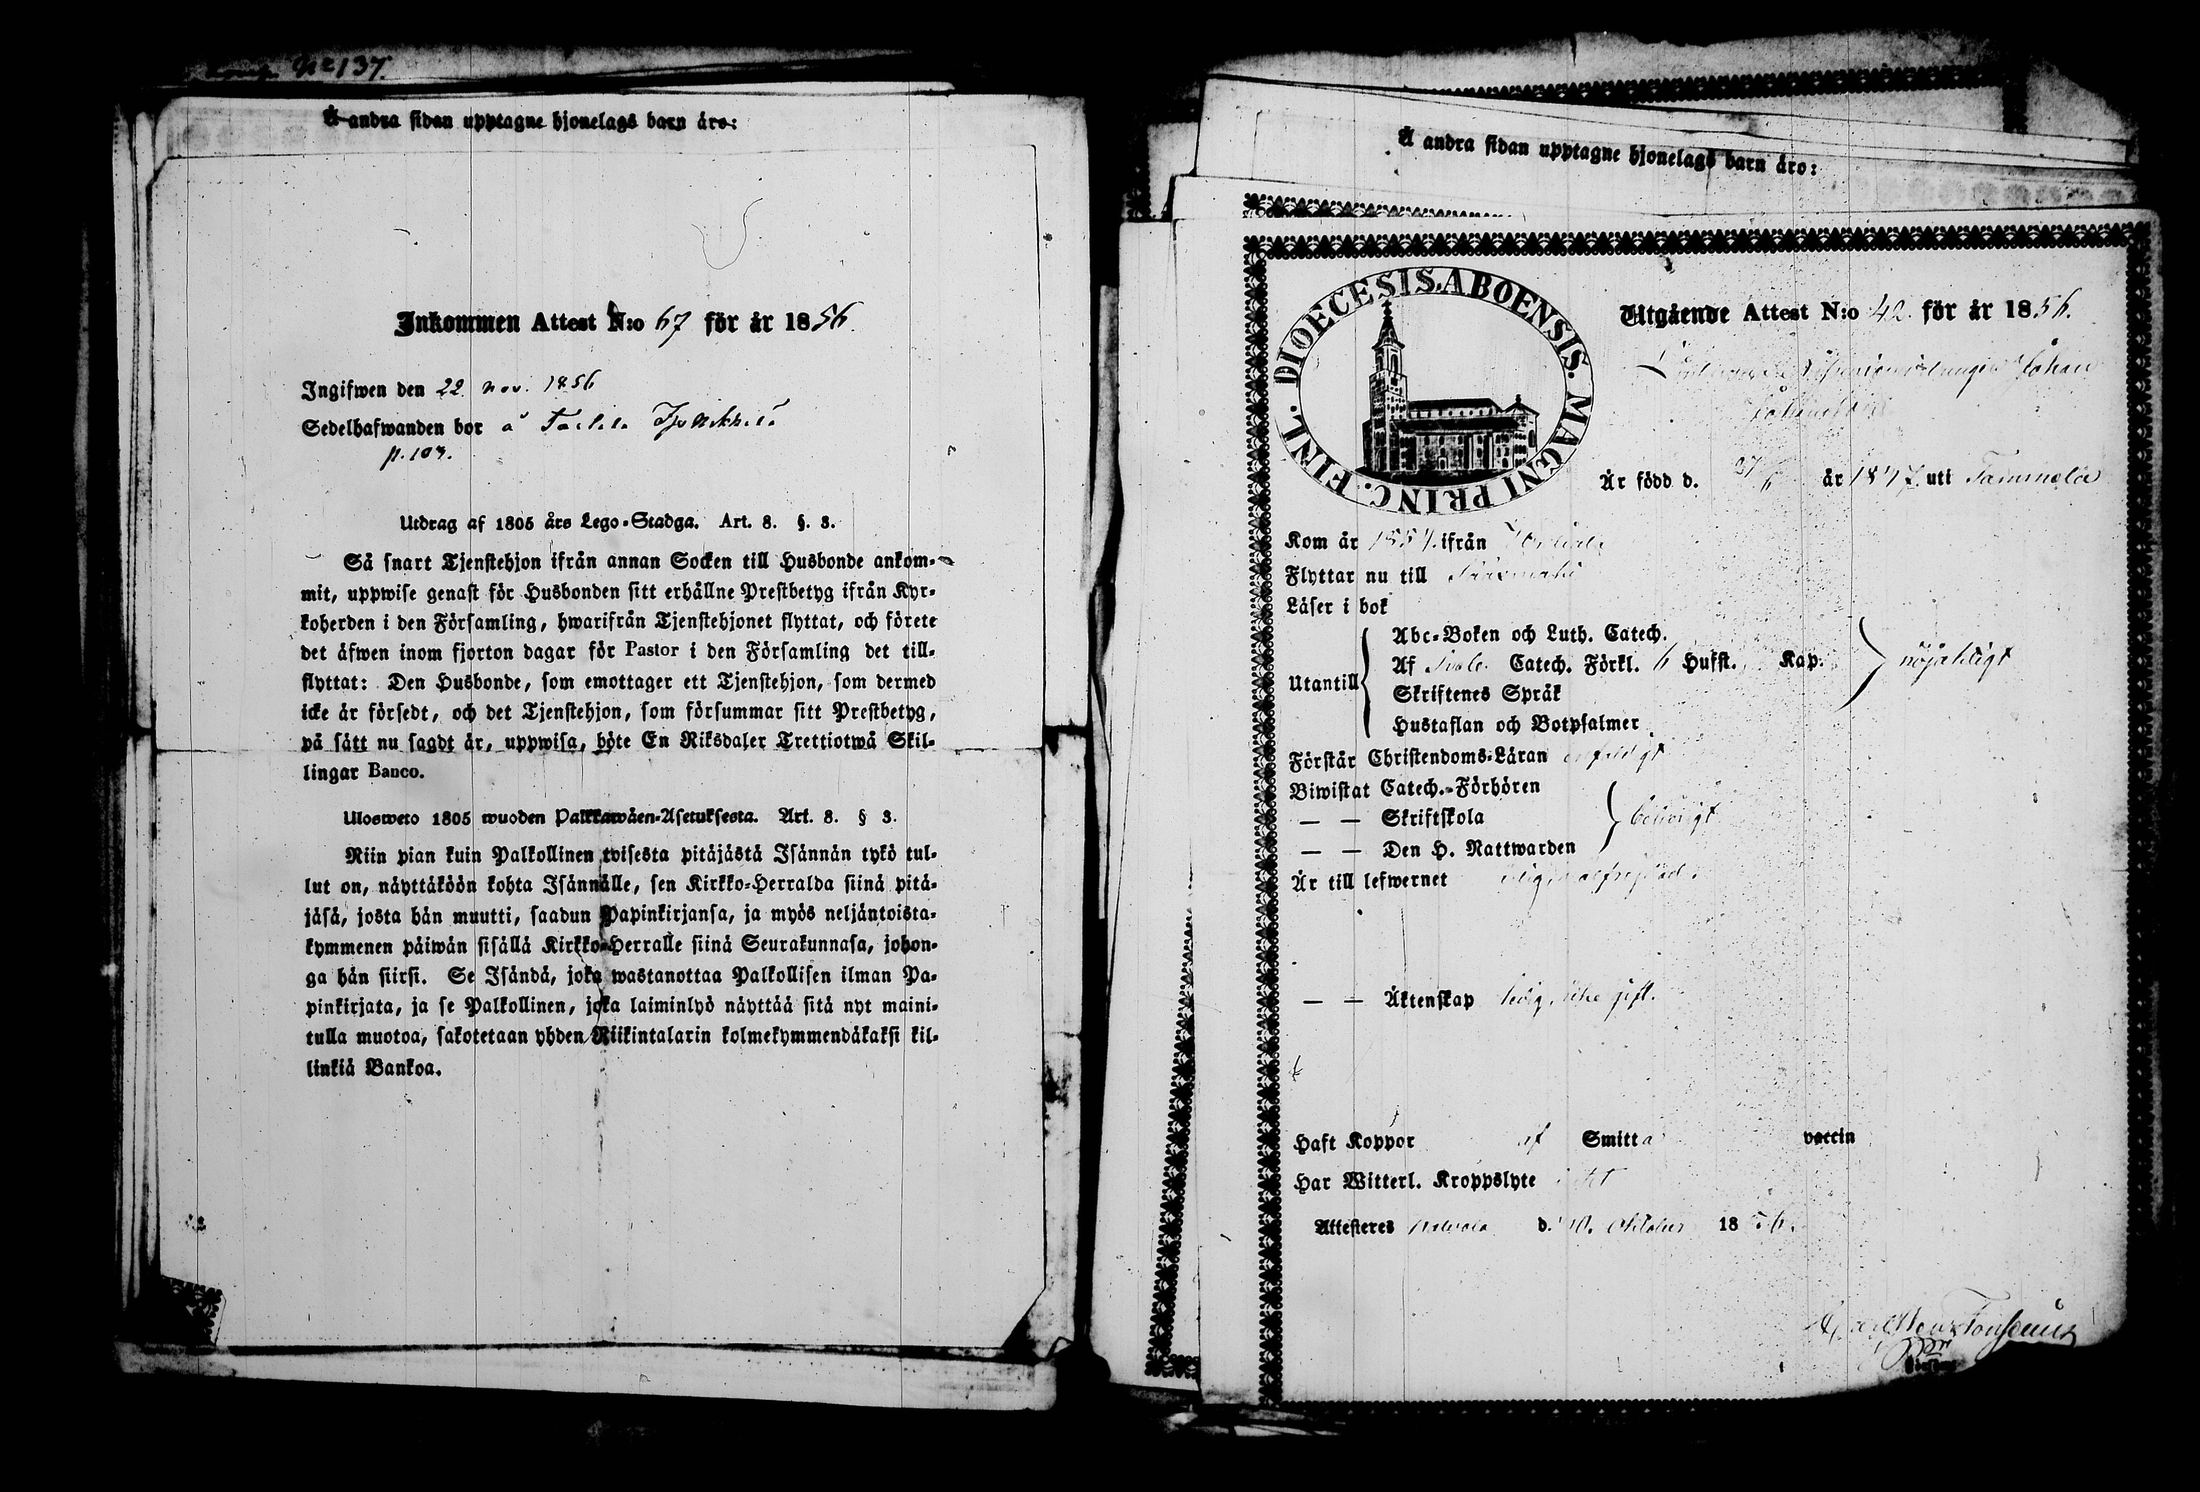 No 137.
Å andra sidan upptagne hjonelags barn äro:
Inkommen Attest N:o 67 för år 1856.
Ingifwen den 22 nov. 1856
Sedelhafwanden bor å
p. 103.
Utdrag af 1805 års Lego-Stadga. Art. 8. §. 3.
Så snart Tjenstehjon ifrån annan Socken till Husbonde ankom-
mit, uppwise genast för Husbonden sitt erhållne Prestbetyg ifrån Kyr-
koherden i den Församling, hwarifrån Tjenstehjonet flyttat, och förete
det äfwen inom fjorton dagar för Pastor i den Församling det till-
flyttat: Den Husbonde, som emottager ett Tjenstehjon, som dermed
icke är försedt, och det Tjenstehjon, som försummar sitt Prestbetyg,
på sätt nu sagdt är, uppwisa, böte En Riksdaler Trettiotwå Skil-
lingar Banco.
Ulosweto 1805 wuoden Palkkawäen-Asetuksesta. Art. 8. § 3.
Niin pian kuin Palkollinen toisesta pitäjästä Isännän tykö tul-
lut on, näyttäköön kohta Isännälle, sen Kirkko-Herralda siinä pitä-
jäsä, josta hän muutti, saadun Papinkirjansa, ja myös neljäntoista-
kymmenen päiwän sisällä Kirkko-Herralle siinä Seurakunnasa, johon-
ga hän siirsi. Se Isändä, joka wastanottaa Palkollisen ilman Pa-
pinkirjata, ja se Palkollinen, joka laiminlyö näyttää sitä nyt maini-
tulla muotoa, sakotetaan yhden Riikintalarin kolmekymmendäkaksi kil-
linkiä Bankoa.
Å andra sidan upptagne hjonelags barn äro:
DIOECESIS. ABOENSIS. MAGNI PRINC. FINL.
Utgående Attest N:o 42 för år 1856.
Johan
Är född d. 27/6 år 1847 uti Tammela
Kom år 1854 ifrån
Flyttar nu till Sääxmäki
Läser i bok
Abc-Boken och Luth. Catech.
Af Sveb. Catech. Förkl. 6 Hufst. Kap.
Utantill nöjaktigt
Skriftenes Språk
Hustaflan och Botpsalmer
Förstår Christendoms-Läran enfaldigt
Biwistat Catech.-Förhören
— — Skriftskola behörigt
— — Den H. Nattwarden
Är till lefwernet
— — Äktenskap ledig, icke gift.
Haft Koppor af Smitta vaccin
Har Witterl. Kroppslyte
Attesteres d. Oktober 1856.